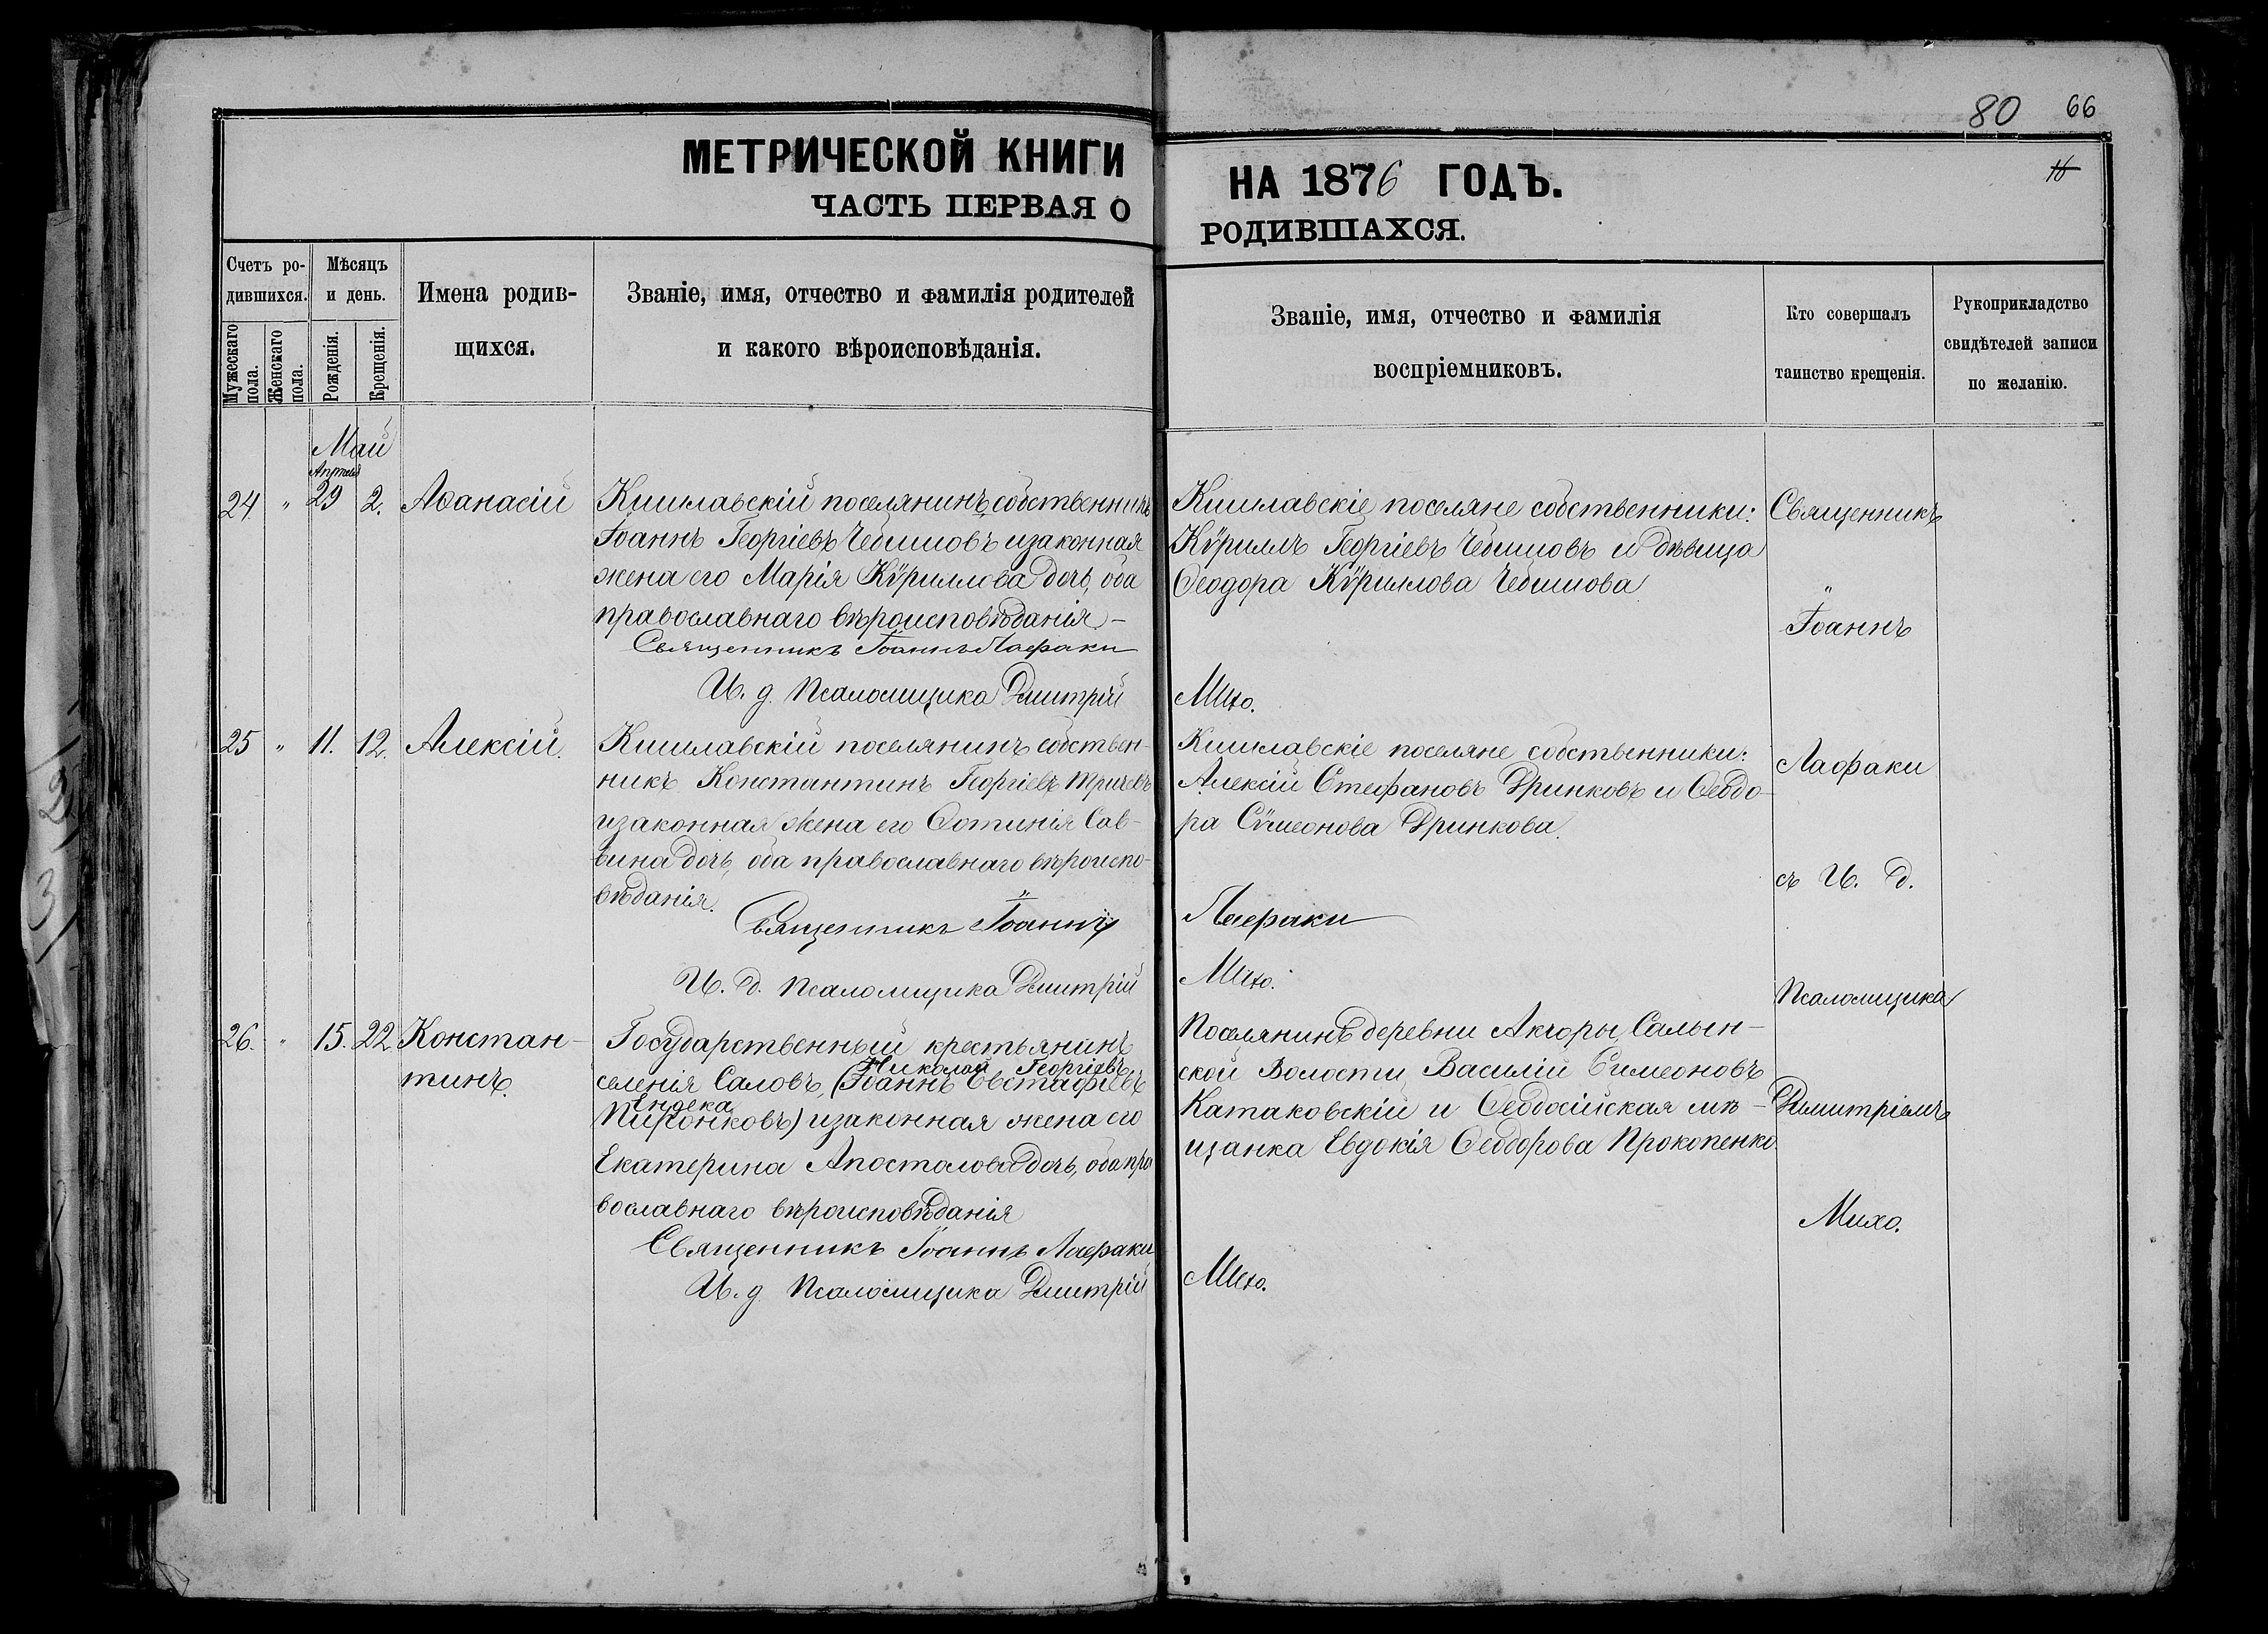 80 66
16
МЕТРИЧЕСКОЙ КНИГИ
ЧАСТЬ ПЕРВАЯ О
НА 1876 ГОДЪ.
РОДИВШАХСЯ.
Счетъ ро-
дившихся.
Мужескаго пола.
Женскаго пола.
Мѣсяцъ
и день.
Рожденія.
Крещенія.
Имена родив-
щихся.
Званіе, имя, отчество и фамилія родителей
и какого вѣроисповѣданія.
Званіе, имя, отчество и фамилія
воспріемниковъ.
Кто совершалъ
таинство крещенія.
Рукоприкладство
свидѣтелей записи
по желанію.
Май
24 " 29 2. Аѳанасій
Кишлавскій поселянинъ собственникъ
Іоаннъ Георгіевъ Чебишовъ изаконная
жена его Марія Кѵриллова дочь, оба
православнаго вѣроисповѣданія –
Священникъ Іоаннъ Лафаки
И. д. Псаломщика Димитрій
Михо.
Кишлавскіе поселяне собственники:
Кѵриллъ Георгіевъ Чебишовъ и дѣвица
Ѳеодора Кѵриллова Чебишова
25 " 11. 12. Алексій.
Кишлавскій поселянинъ собствен-
никъ Константинъ Георгіевъ Тричевъ
изаконная жена его Фотинія Сав-
вина дочь, оба православнаго вѣроиспо-
вѣданія.
Священникъ Іоаннъ
Лафаки
И. д. Псаломщика Димитрій
Михо.
Кишлавскіе поселяне собственники:
Алексій Стефановъ Дринковъ и Ѳеодо-
ра Сѵмеонова Дринкова.
26. " 15. 22. Констан-
тинъ.
Государственный крестьянинъ
Николай Георгіевъ
селенія Саловъ, (Іоаннъ Евстафіевъ
Ендека
Пиронковъ) изаконная жена его
Екатерина Апостолова дочь, оба пра
вославнаго вѣроисповѣданія
Священникъ Іоаннъ Лафаки
И. д. Псаломщика Димитрій
Михо.
Поселянинъ деревни Акчоры, Салын-
ской Волости, Василій Симеоновъ
Катаковскій и Ѳеодосійская мѣ-
щанка Евдокія Ѳеодорова Прокопенко.
Священникъ
Іоаннъ
Лафаки
съ И. д.
Псаломщика
Димитріемъ
Михо.